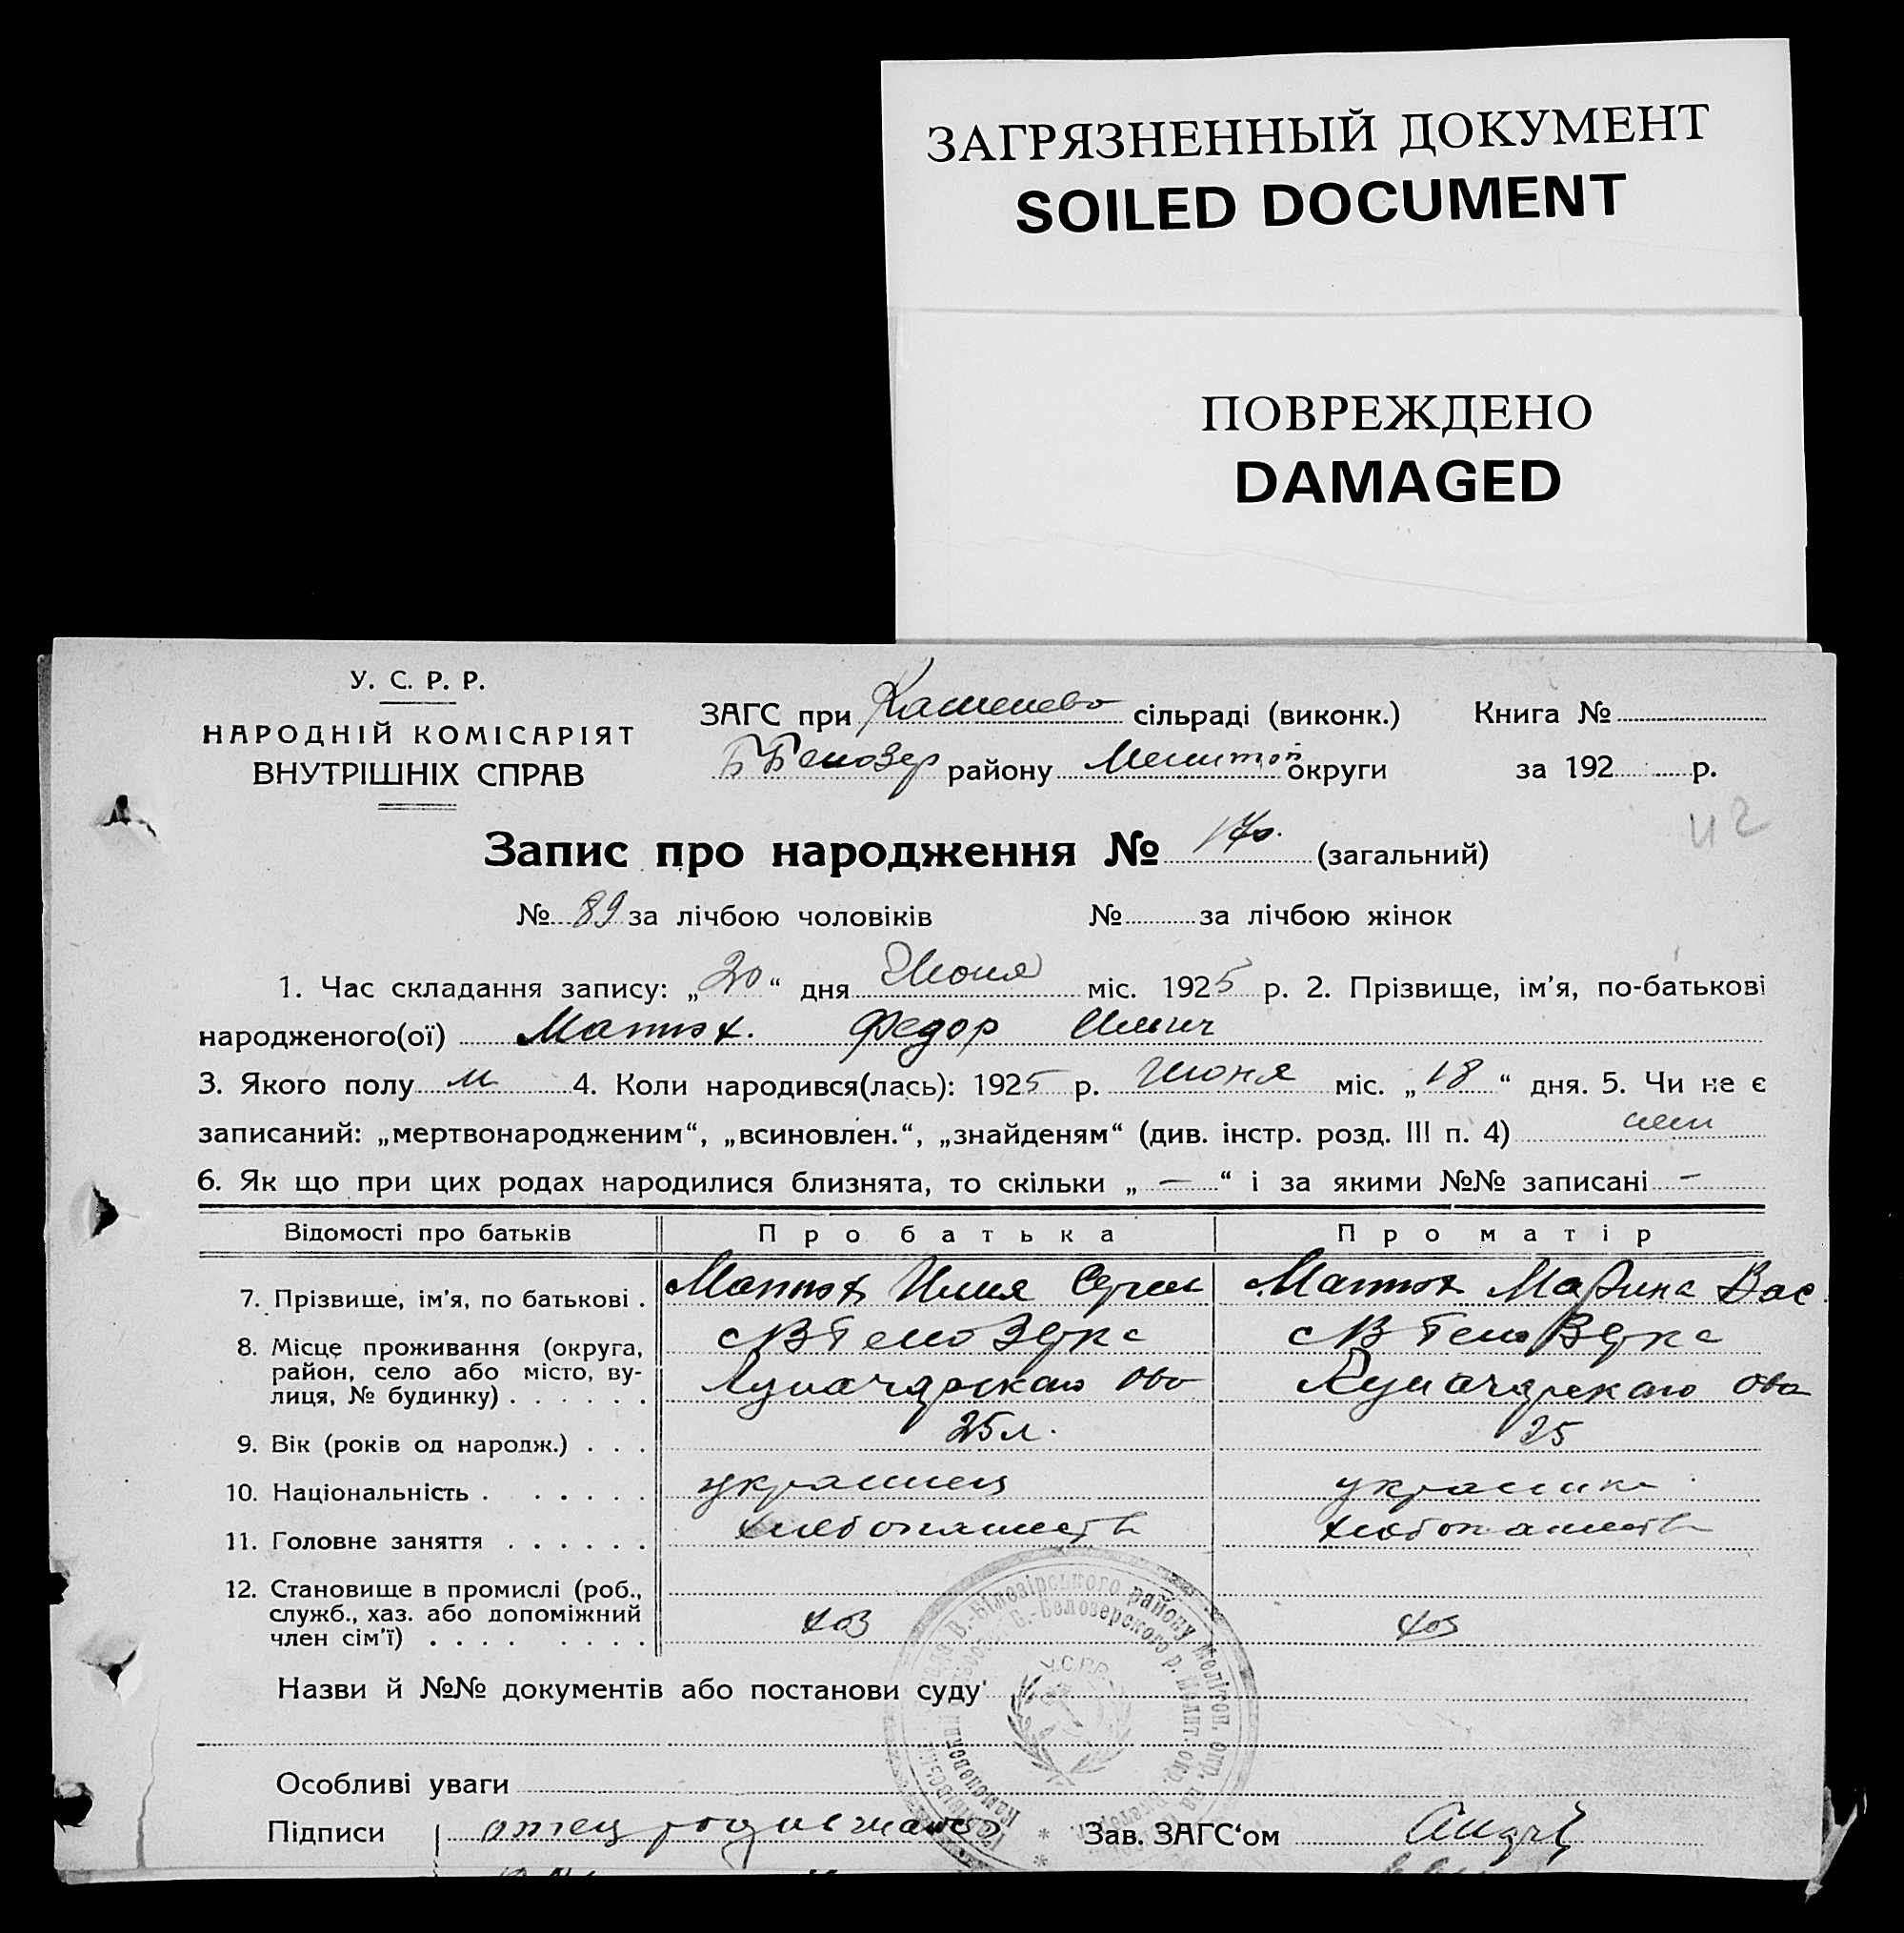 ЗАГРЯЗНЕННЫЙ ДОКУМЕНТ
SOILED DOCUMENT
ПОВРЕЖДЕНО
DAMAGED
У. С. Р. Р.
НАРОДНІЙ КОМІСАРІЯТ
ВНУТРІШНІХ СПРАВ
ЗАГС при сільраді (виконк.) Книга №
району округи за 192 р.
Запис про народження № (загальний)
№ 89 за лічбою чоловіків № за лічбою жінок
1. Час складання запису: „20“ дня Июня міс. 1925 р. 2. Прізвище, ім’я, по-батькові
народженого(ої) Матюх. Федор Ильич
3. Якого полу м 4. Коли народився(лась): 1925 р. Июня міс. „18“ дня. 5. Чи не є
записаний: „мертвонародженим“, „всиновлен.“, „знайденям“ (див. інстр. розд. III п. 4) нет
6. Як що при цих родах народилися близнята, то скільки „ — “ і за якими №№ записані —
Відомості про батьків Про батька Про матір
7. Прізвище, ім’я, по батькові . Матюх Илия Серг Матюх Марина Вас.
8. Місце проживання (округа,
район, село або місто, ву-
лиця, № будинку) . . . . . .
9. Вік (років од народж.) . . . 25 л. 25
10. Національність . . . . . . украинец украинка
11. Головне заняття . . . . . . хлебопашеств хлебопашеств
12. Становище в промислі (роб.,
служб., хаз. або допоміжний
член сім’ї) . . . . . . . . хоз хоз
Назви й №№ документів або постанови суду
У.С.Р.Р.
Особливі уваги
Підписи отец Зав. ЗАГС‘ом